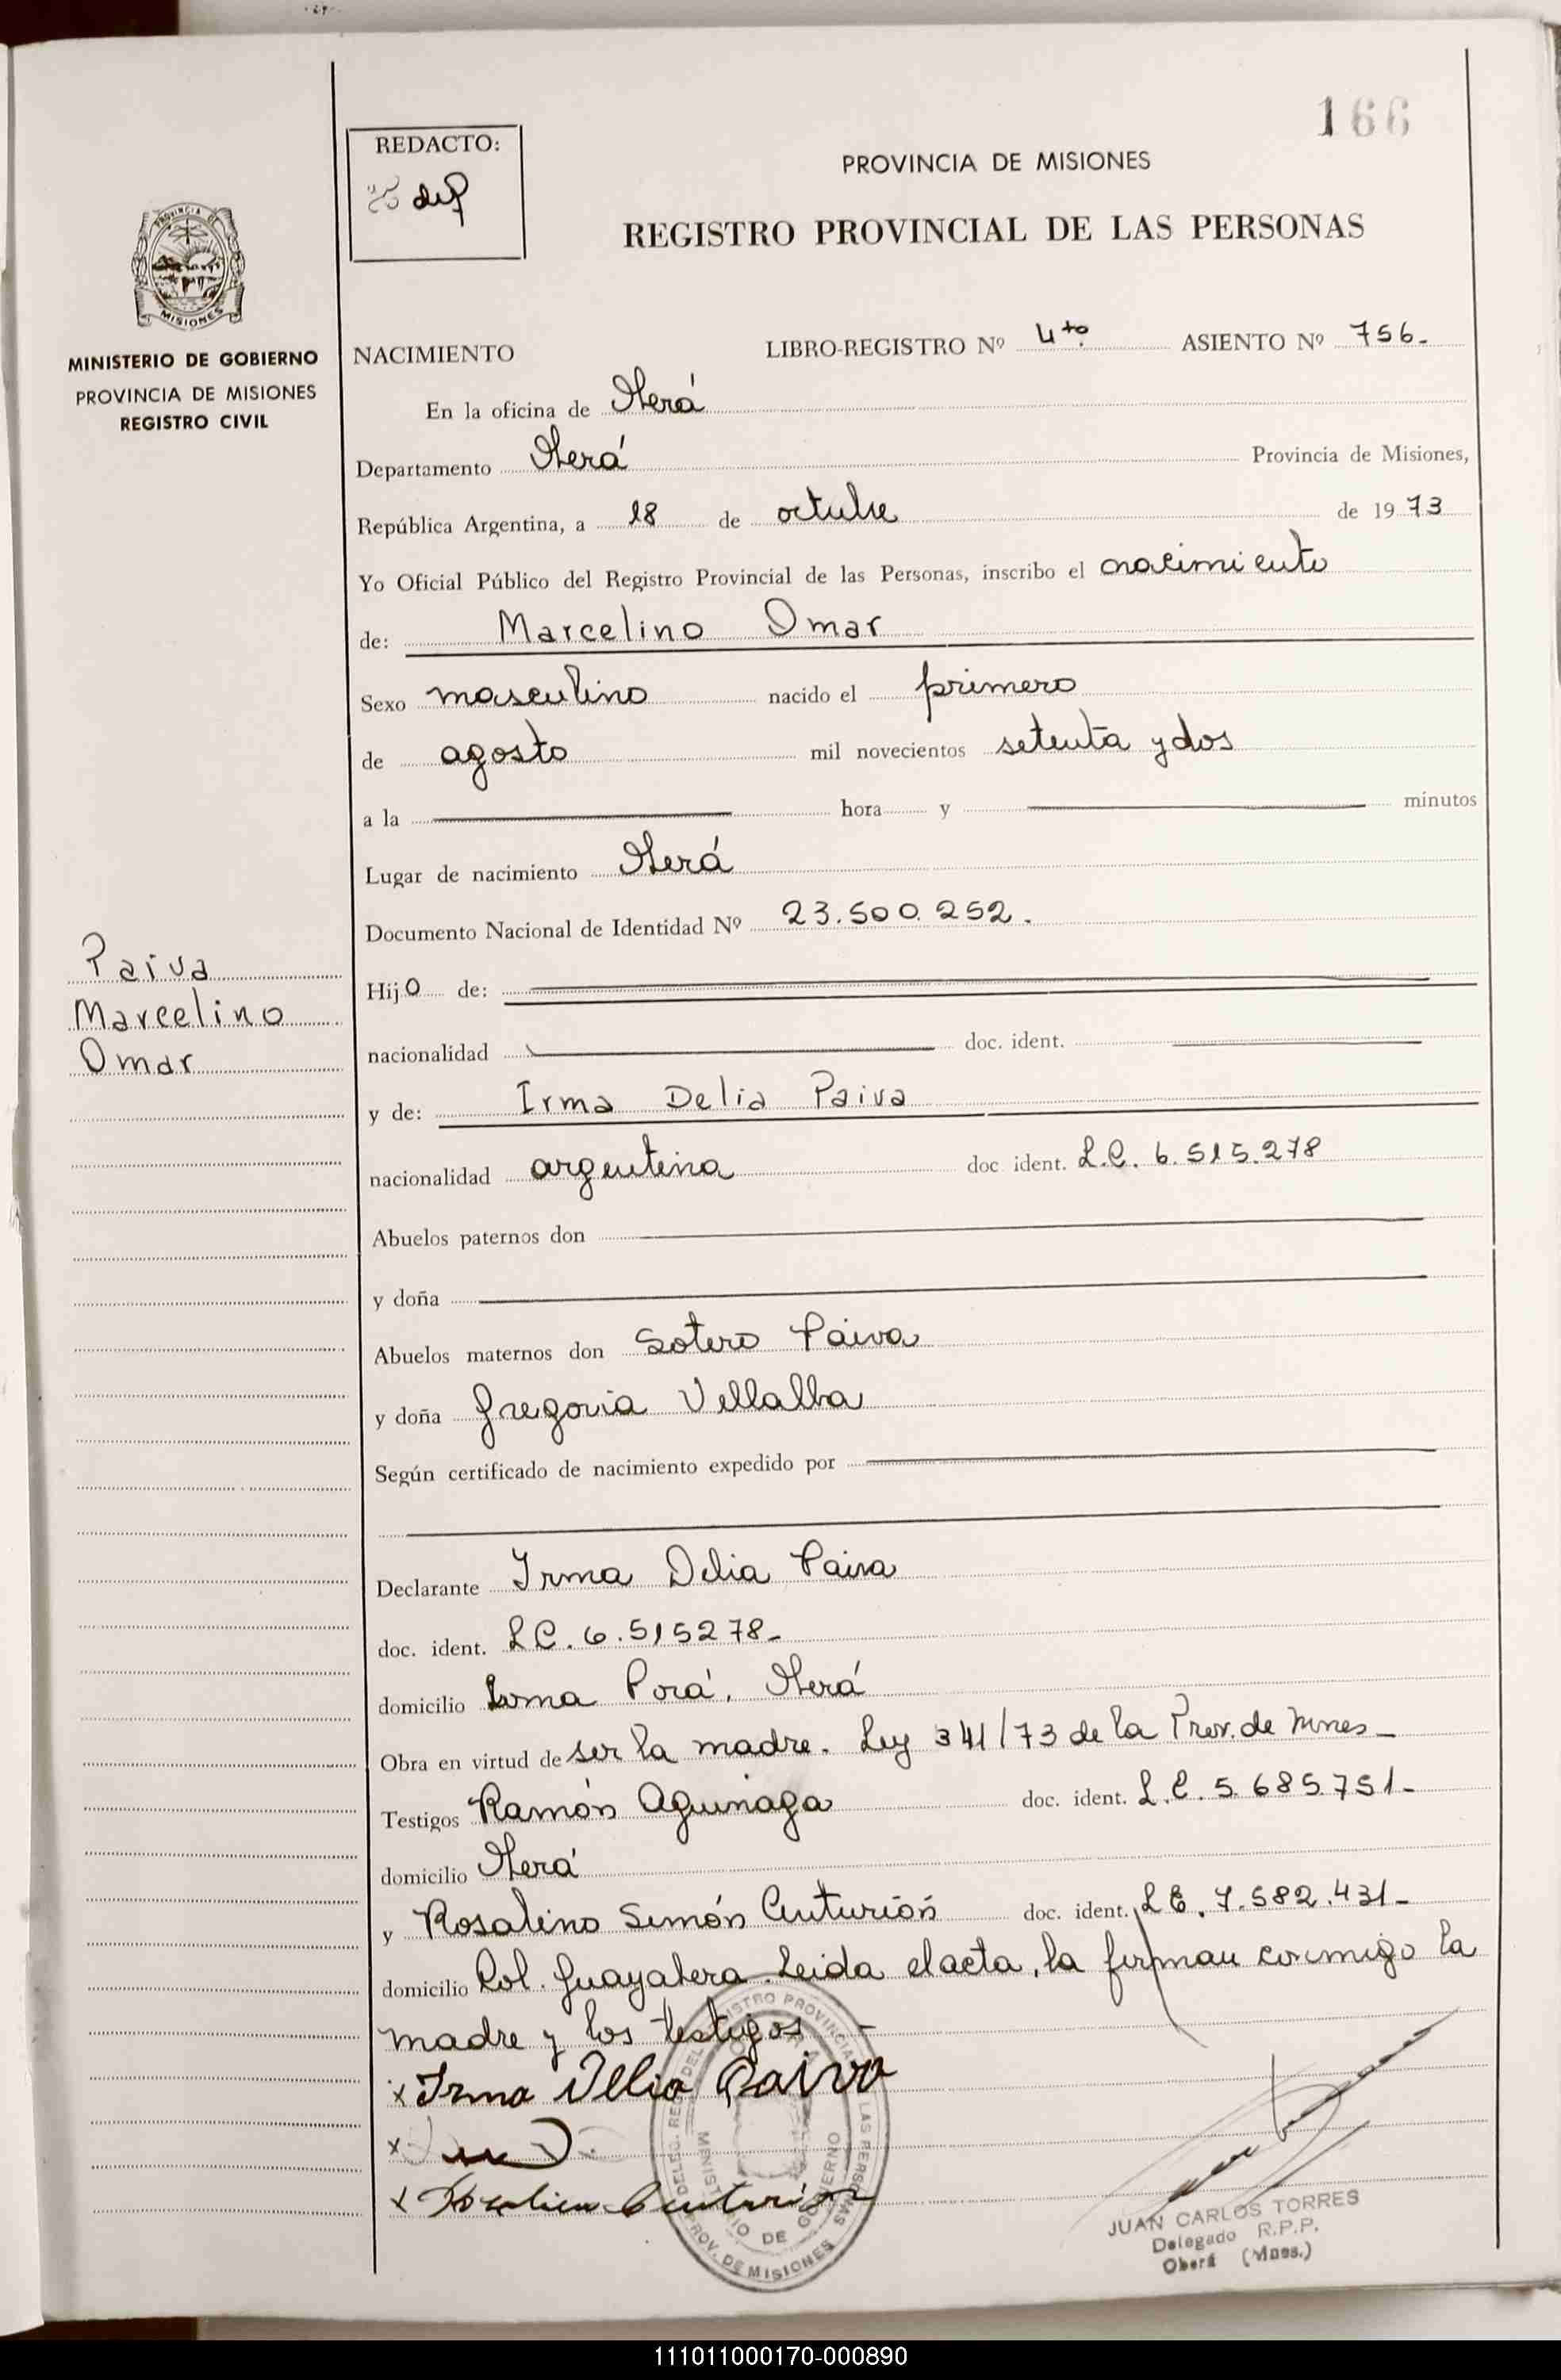 166
REDACTO:
PROVINCIA DE MISIONES
REGISTRO PROVINCIAL DE LAS PERSONAS
PROVINCIA DE
MISIONES
MINISTERIO DE GOBIERNO
PROVINCIA DE MISIONES
REGISTRO CIVIL
NACIMIENTO LIBRO-REGISTRO Nº 4to. ASIENTO Nº 756.-
En la oficina de Oberá
Departamento Oberá Provincia de Misiones,
República Argentina, a 18 de octubre de 1973
Yo Oficial Público del Registro Provincial de las Personas, inscribo el nacimiento
de: Marcelino Omar
Sexo masculino nacido el primero
de agosto mil novecientos setenta y dos
a la hora y minutos
Lugar de nacimiento Oberá
Documento Nacional de Identidad Nº 23.500.252.
Paiva
Marcelino
Omar
Hijo de:
nacionalidad doc. ident.
y de: Irma Delia Paiva
nacionalidad argentina doc ident. L.C. 6.515.278
Abuelos paternos don
y doña
Abuelos maternos don Sotero Paiva
y doña Gregoria Villalba
Según certificado de nacimiento expedido por
Declarante Irma Delia Paiva
doc. ident. LC. 6.515278-
domicilio Loma Porá, Oberá
Obra en virtud de ser la madre. Ley 341/73 de la Prov. de Mnes-
Testigos Ramón Aguinaga doc. ident. L.E. 5.685.751-
domicilio Oberá
y Rosalino Simón Centurión doc. ident. LE. 7.582.431-
domicilio Col. Guayabera. Leida el acta, la firman conmigo la
madre y los testigos. -
x Irma Delia Paiva
x
x Rosalino Centurión
DELEG. REG. DEL REGISTRO PROVINCIAL DE LAS PERSONAS
OBERA
MINISTERIO DE GOBIERNO
PROV. DE MISIONES
JUAN CARLOS TORRES
Delegado R.P.P.
Oberá (Mnes.)
111011000170-000890